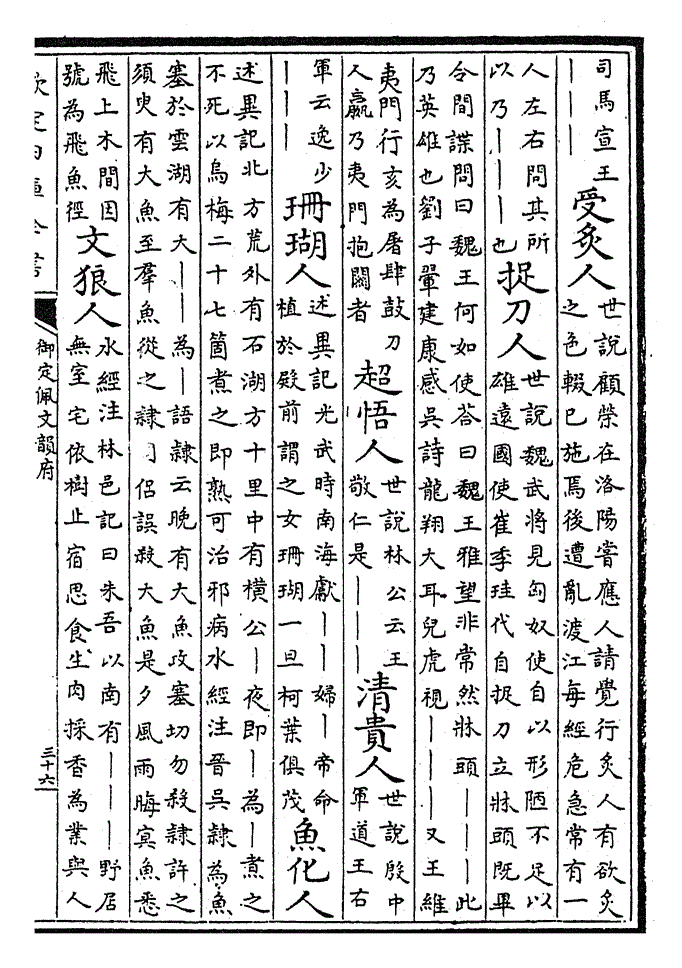 司馬宣王
｜｜｜
受炙人
世說顧榮在洛陽嘗應人請覺行炙人有欲炙
之色輟已施焉後遭亂渡江每經危急常有一
人左右問其所
以乃｜｜｜也
捉刀人
世說魏武將見匈奴使自以形陋不足以
雄遠國使崔季珪代自捉刀立牀頭既畢
令間諜問曰魏王何如使荅曰魏王雅望非常然牀頭｜｜｜此
乃英雄也劉子翬建康感吳詩龍翔大耳兒虎視｜｜｜又王維
夷門行亥為屠肆鼓刀
人嬴乃夷門抱關者
超悟人
世說林公云王
敬仁是｜｜｜
清貴人
世說殷中
軍道王右
軍云逸少
｜｜｜
珊瑚人
述異記光武時南海獻｜｜婦｜帝命
植於殿前謂之女珊瑚一旦柯葉俱茂
魚化人
述異記北方荒外有石湖方十里中有橫公｜夜即｜為｜煮之
不死以烏梅二十七箇煮之即熟可治邪病水經注晉吳隸為魚
塞於雲湖有大｜｜為｜語隸云晚有大魚攻塞切勿殺隸許之
須臾有大魚至羣魚從之隸同侶誤殺大魚是夕風雨晦冥魚悉
飛上木間因
號為飛魚徑
文狼人
水經注林邑記曰朱吾以南有｜｜｜野居
無室宅依樹止宿思食生肉採香為業與人
欽定四庫全書
御定佩文韻府
三十六